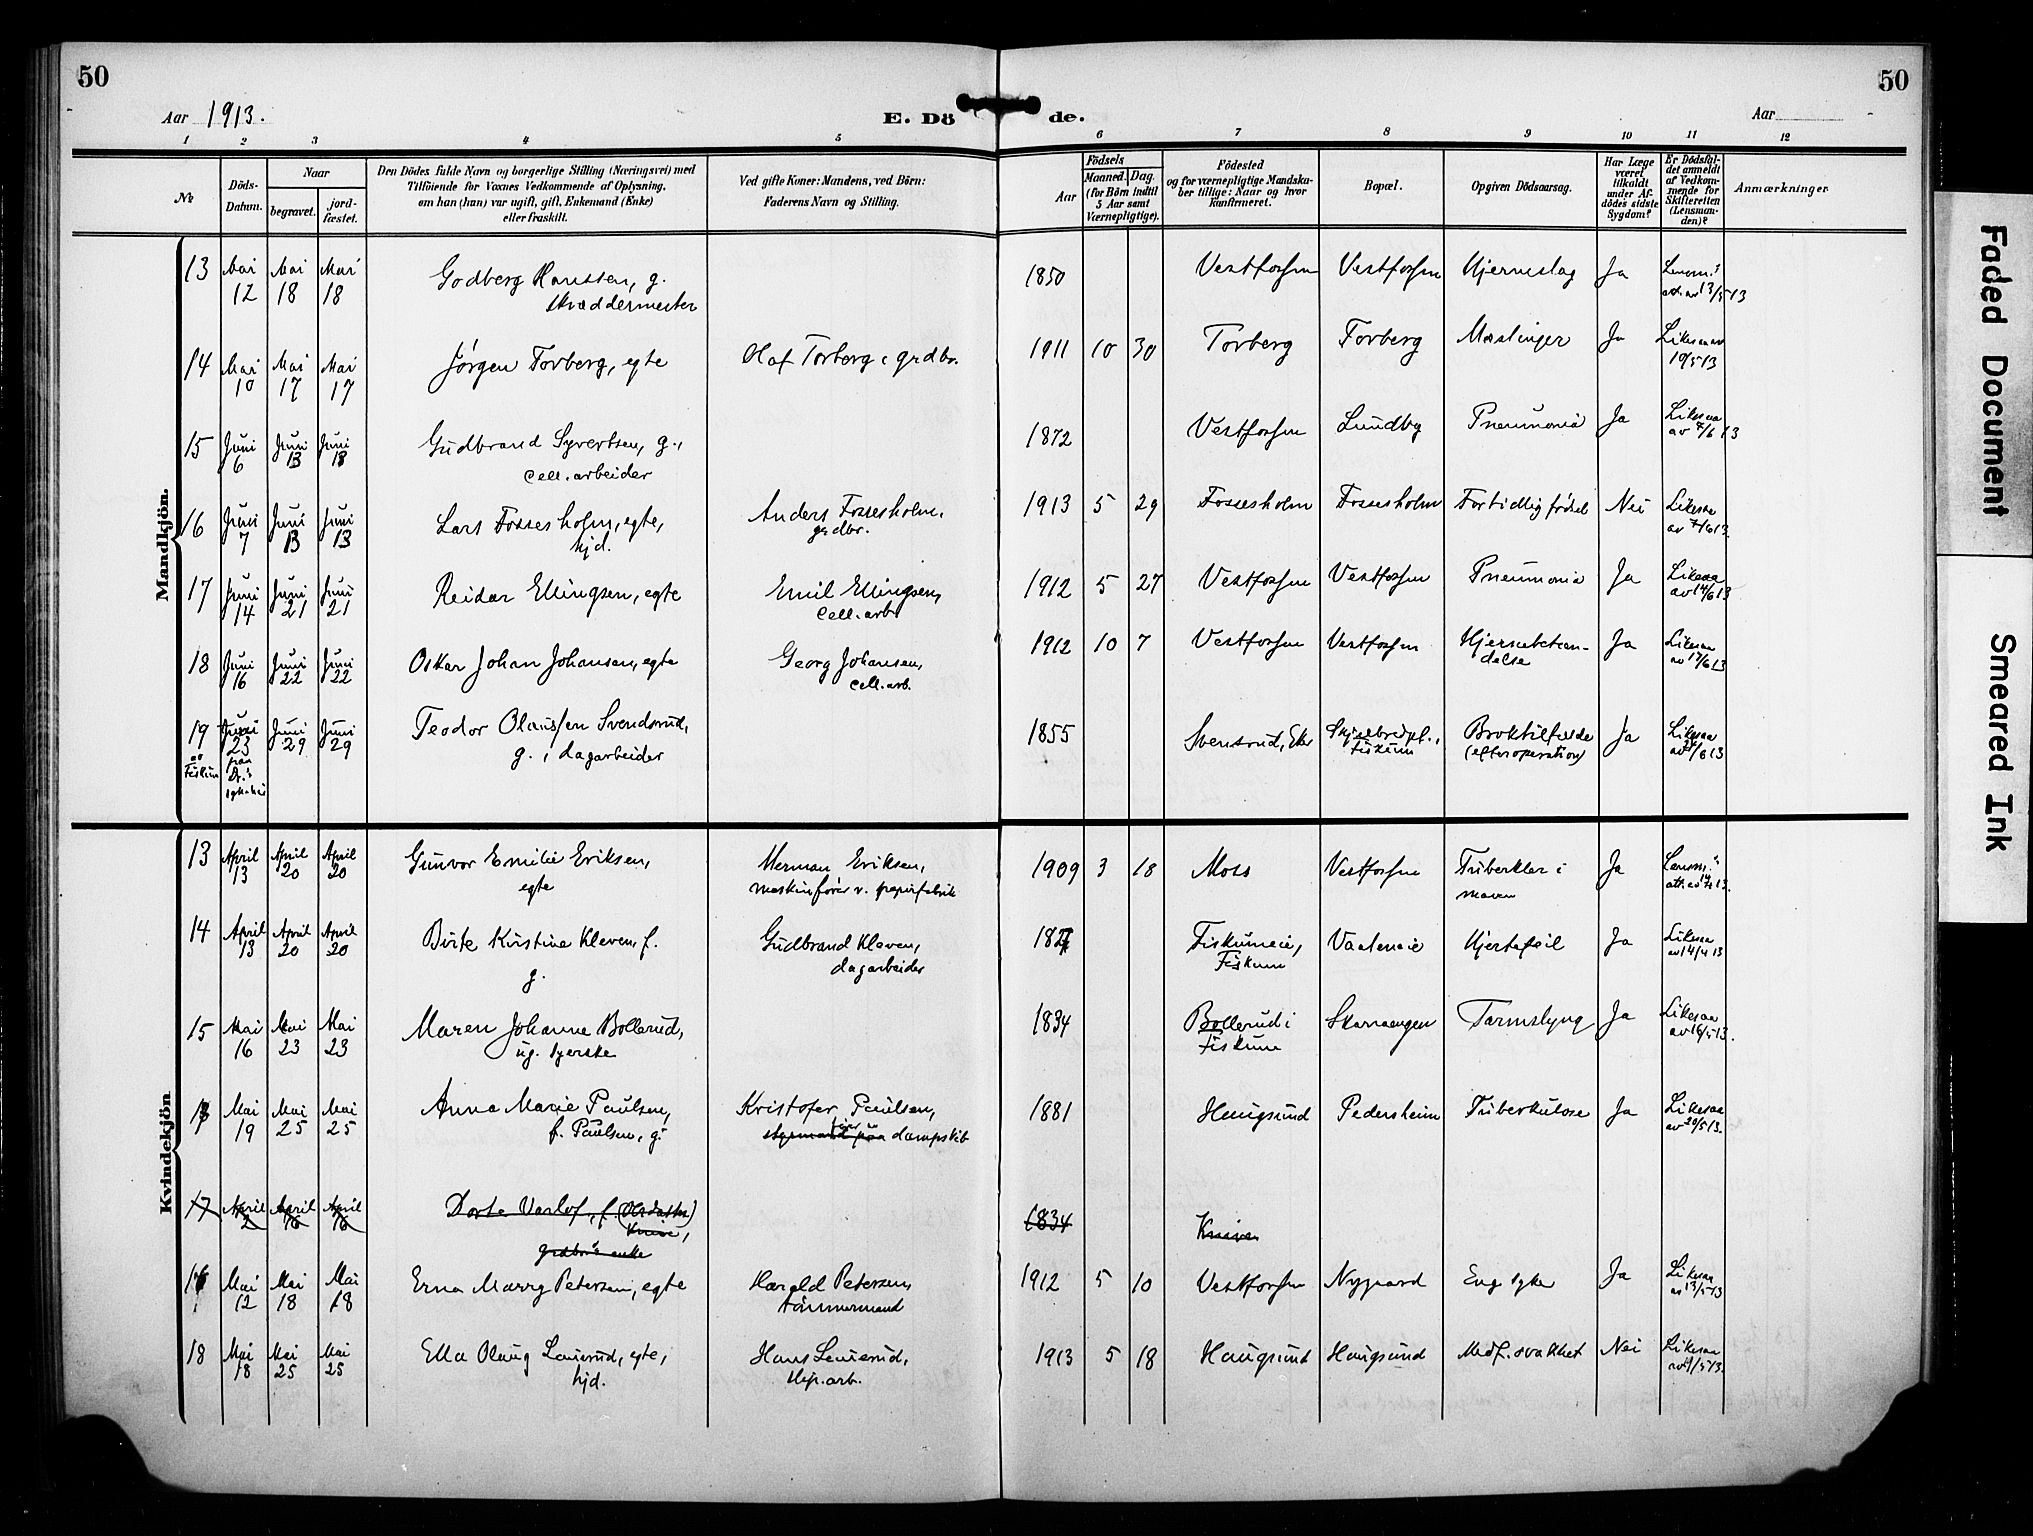 50
50
Aar 1913.
E. Dö de.
Aar
1 2 3 4 5 6 7 8 9 10 11 12
№
Döds-
Datum.
Naar
begravet.
jord-
fæstet.
Den Dödes fulde Navn og borgerlige Stilling (Næringsvei) med
Tilföiende for Voxnes Vedkommende af Oplysning,
om han (hun) var ugift, gift, Enkemand (Enke)
eller fraskilt.
Ved gifte Koner: Mandens, ved Börn:
Faderens Navn og Stilling.
Födsels
Aar
Maaned. Dag.
(for Börn indtil
5 Aar samt
Værnepligtige).
Födested
og for værnepligtige Mandska-
ber tillige: Naar og hvor
konfirmeret.
Bopæl.
Opgiven Dödsaarsag.
Har Læge
været
tilkaldt
under Af-
dödes sidste
Sygdom?
Er Dödsfal-
det anmeldt
af Vedkom-
mende for
Skifteretten
(Lensman-
den)?
Anmærkninger
Mandkjön.
13 Mai 12 Mai 18 Mai 18 Godberg Hanssen, g. 1850 Vestfossen Vestfossen Hjerneslag Ja
skræddermester 13/5 13
14 Mai 10 Mai 17 Mai 17 Jørgen Forberg, egte Olaf Torberg, grdbr. 1911 10 30 Torberg Forberg Mæslinger Ja Likesaa av
10/5 13
15 Juni 6 Juni 13 Juni 13 Gudbrand Syvertsen, g., 1872 Vestfossen Lundby Pneumonia Ja Likesaa
cell. arbeider av 7/6 13
16 Juni 7 Juni 13 Juni 13 Lars Fossesholm, egte, Anders Fossesholm, 1913 5 29 Fossesholm Fossesholm For tidlig fødsel Nei Likesaa
hjd. grdbr. av 7/6 13
17 Juni 14 Juni 21 Juni 21 Reidar Ellingsen, egte Emil Ellingsen, 1912 5 27 Vestfossen Vestfossen Pneumonia Ja Likesaa
cell. arb. av 14/6 13
18 Juni 16 Juni 22 Juni 22 Oskar Johan Johansen, egte Georg Johansen, 1912 10 7 Vestfossen Vestfossen Hjernebetæn- Ja Likesaa
cell. arb. delse av 17/6 13
19 Juni 23 Juni 29 Juni 29 Teodor Olaussen Svendsrud, 1855 Svensrud, Eker Ja Likesaa
av Fiskum g., dagarbeider Fiskum (efter operation)
Kvindekjön
13 April 13 April 20 April 20 Gunvor Emilie Eriksen, Herman Eriksen, 1909 3 18 Moss Vestfossen Tuberkler i Ja
egte maskinfører v. papirfabrik maven
14 April 13 April 20 April 20 Birte Kirstine Kleven, f. Gudbrand Kleven, Fiskumeie, Hjertefeil Ja Likesaa
g. dagarbeider Fiskum av 14/4 13
15 Mai 16 Mai 23 Mai 23 Maren Johanne Bollerud, 1834 Bollerud i Skaraengen Tarmslyng Ja Likesaa
ug. syerske Fiskum av 16/5 13.
Mai 19 Mai 25 Mai 25 Anna Marie Paulsen, Kristofer Paulsen, 1881 Haugsund Pedersheim Tuberkulose Ja Likesaa
f. Paulsen, g. styrmand paa dampskib av 20/5 13.
17 April 2 April April Dorte Varlo, f. (Olsdatter) 1834 Knive
Knive,
grdbr's enke
Mai 12 Mai 18 Mai 18 Erna Marry Petersen, egte Harald Petersen, 1912 5 10 Vestfossen Nygaard Eng. syke Ja Likesaa
tømmermand av 13/5 13
18 Mai 18 Mai 25 Mai 25 Ella Olaug Lauerud, egte, Hans Lauerud, 1913 5 18 Haugsund Haugsund Medf. svakhet Nei Likesaa
hjd. slip. arb.
Faded Document
Smeared Ink